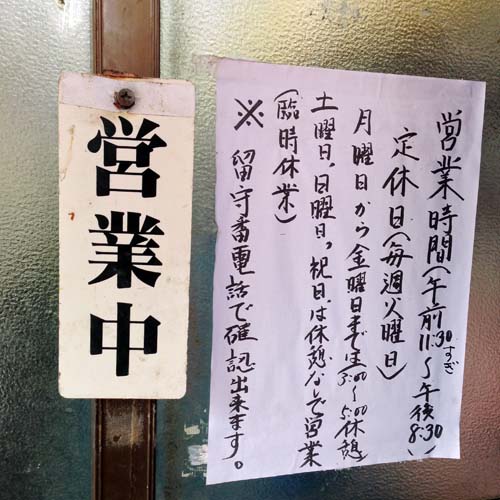 営業中
営業時間(午前11:30すぎ～午後8:30)
定休日(毎週火曜日)
月曜日から金曜日までは3:00～5:00休憩
土曜日,日曜日,祝日は休憩なしで営業
(臨時休業)
※ 留守番電話で確認出来ます。